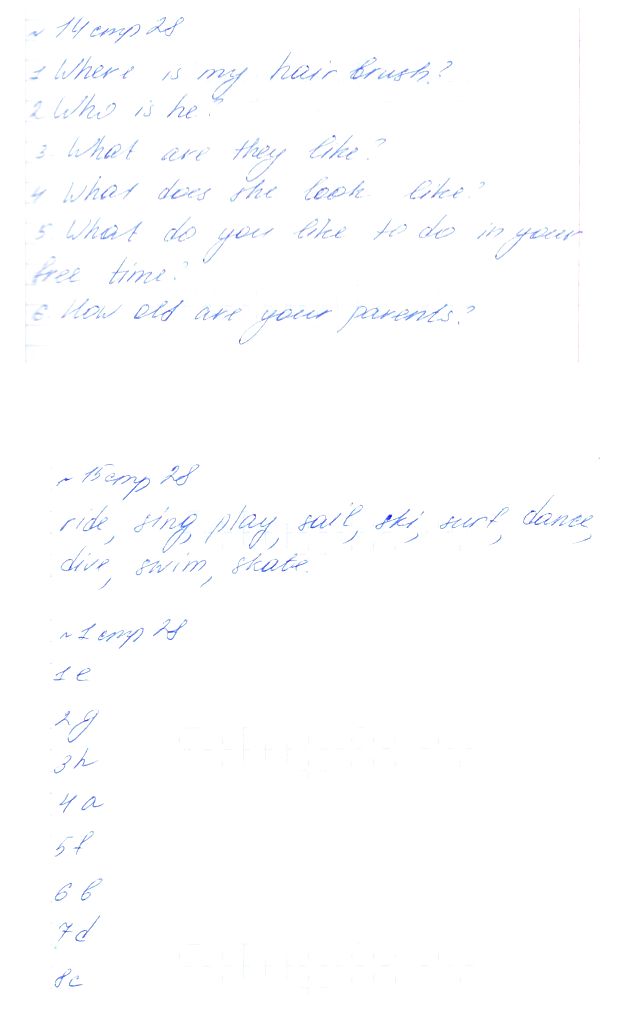 ~ 14 стр 28
1 Where is my hair brush?
2 Who is he?
3 What are they like?
4 What does she look like?
5 What do you like to do in your
free time?
6 How old are your parents?
~ 15 стр 28
ride, sing, play, sail, ski, surf, dance,
dive, swim, skate.
~ 1 стр 28
1 e
2 g
3 h
4 a
5 f
6 b
7 d
8 c